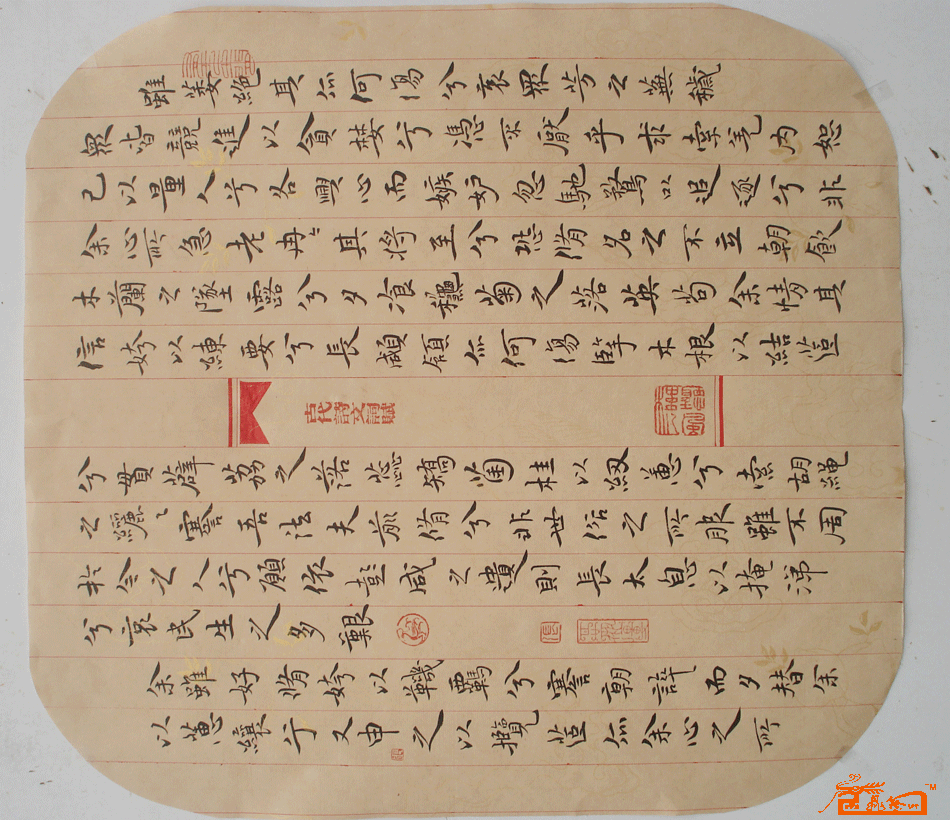 雖萎絕其亦何傷兮哀眾芳之蕪穢
眾皆競進以貪婪兮憑不厭乎求索羌內恕
己以量人兮各興心而嫉妒忽馳騖以追逐兮非
余心所急老冉〻其將至兮恐脩名之不立朝飲
木蘭之墜露兮夕飡龝菊之落英苟余情其
信姱以練要兮長顑頷亦何傷擥木根以結茝
古代詩文詞賦
兮貫薜荔之落蕊矯菌桂以紉蕙兮索胡繩
之纚〻謇吾法夫前脩兮非世俗之所服雖不周
於今之人兮願依彭咸之遺則長太息以掩涕
兮哀民生之多艱
余雖好脩姱以鞿羈兮謇朝誶而夕替余
以蕙纕兮又申之以攬茝亦余心之所